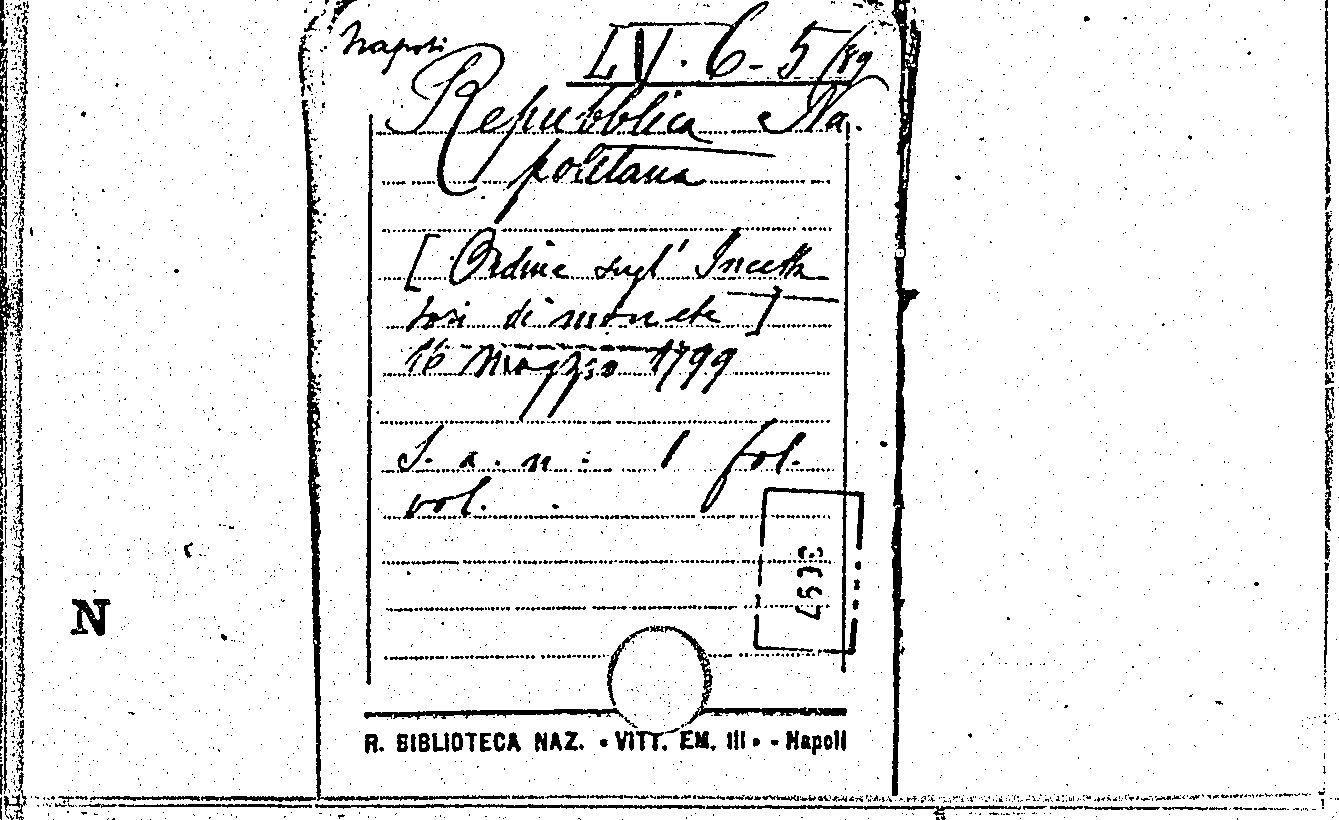 Napoli
LV. 6-5/89
Repubblica Na.
poletana
[Ordine sugl' Incetta
tori di monete]
16 Maggio 1799
S. a. n. 1 fol.
vol.
N
R. BIBLIOTECA NAZ. • VITT. EM. III • - Napoli